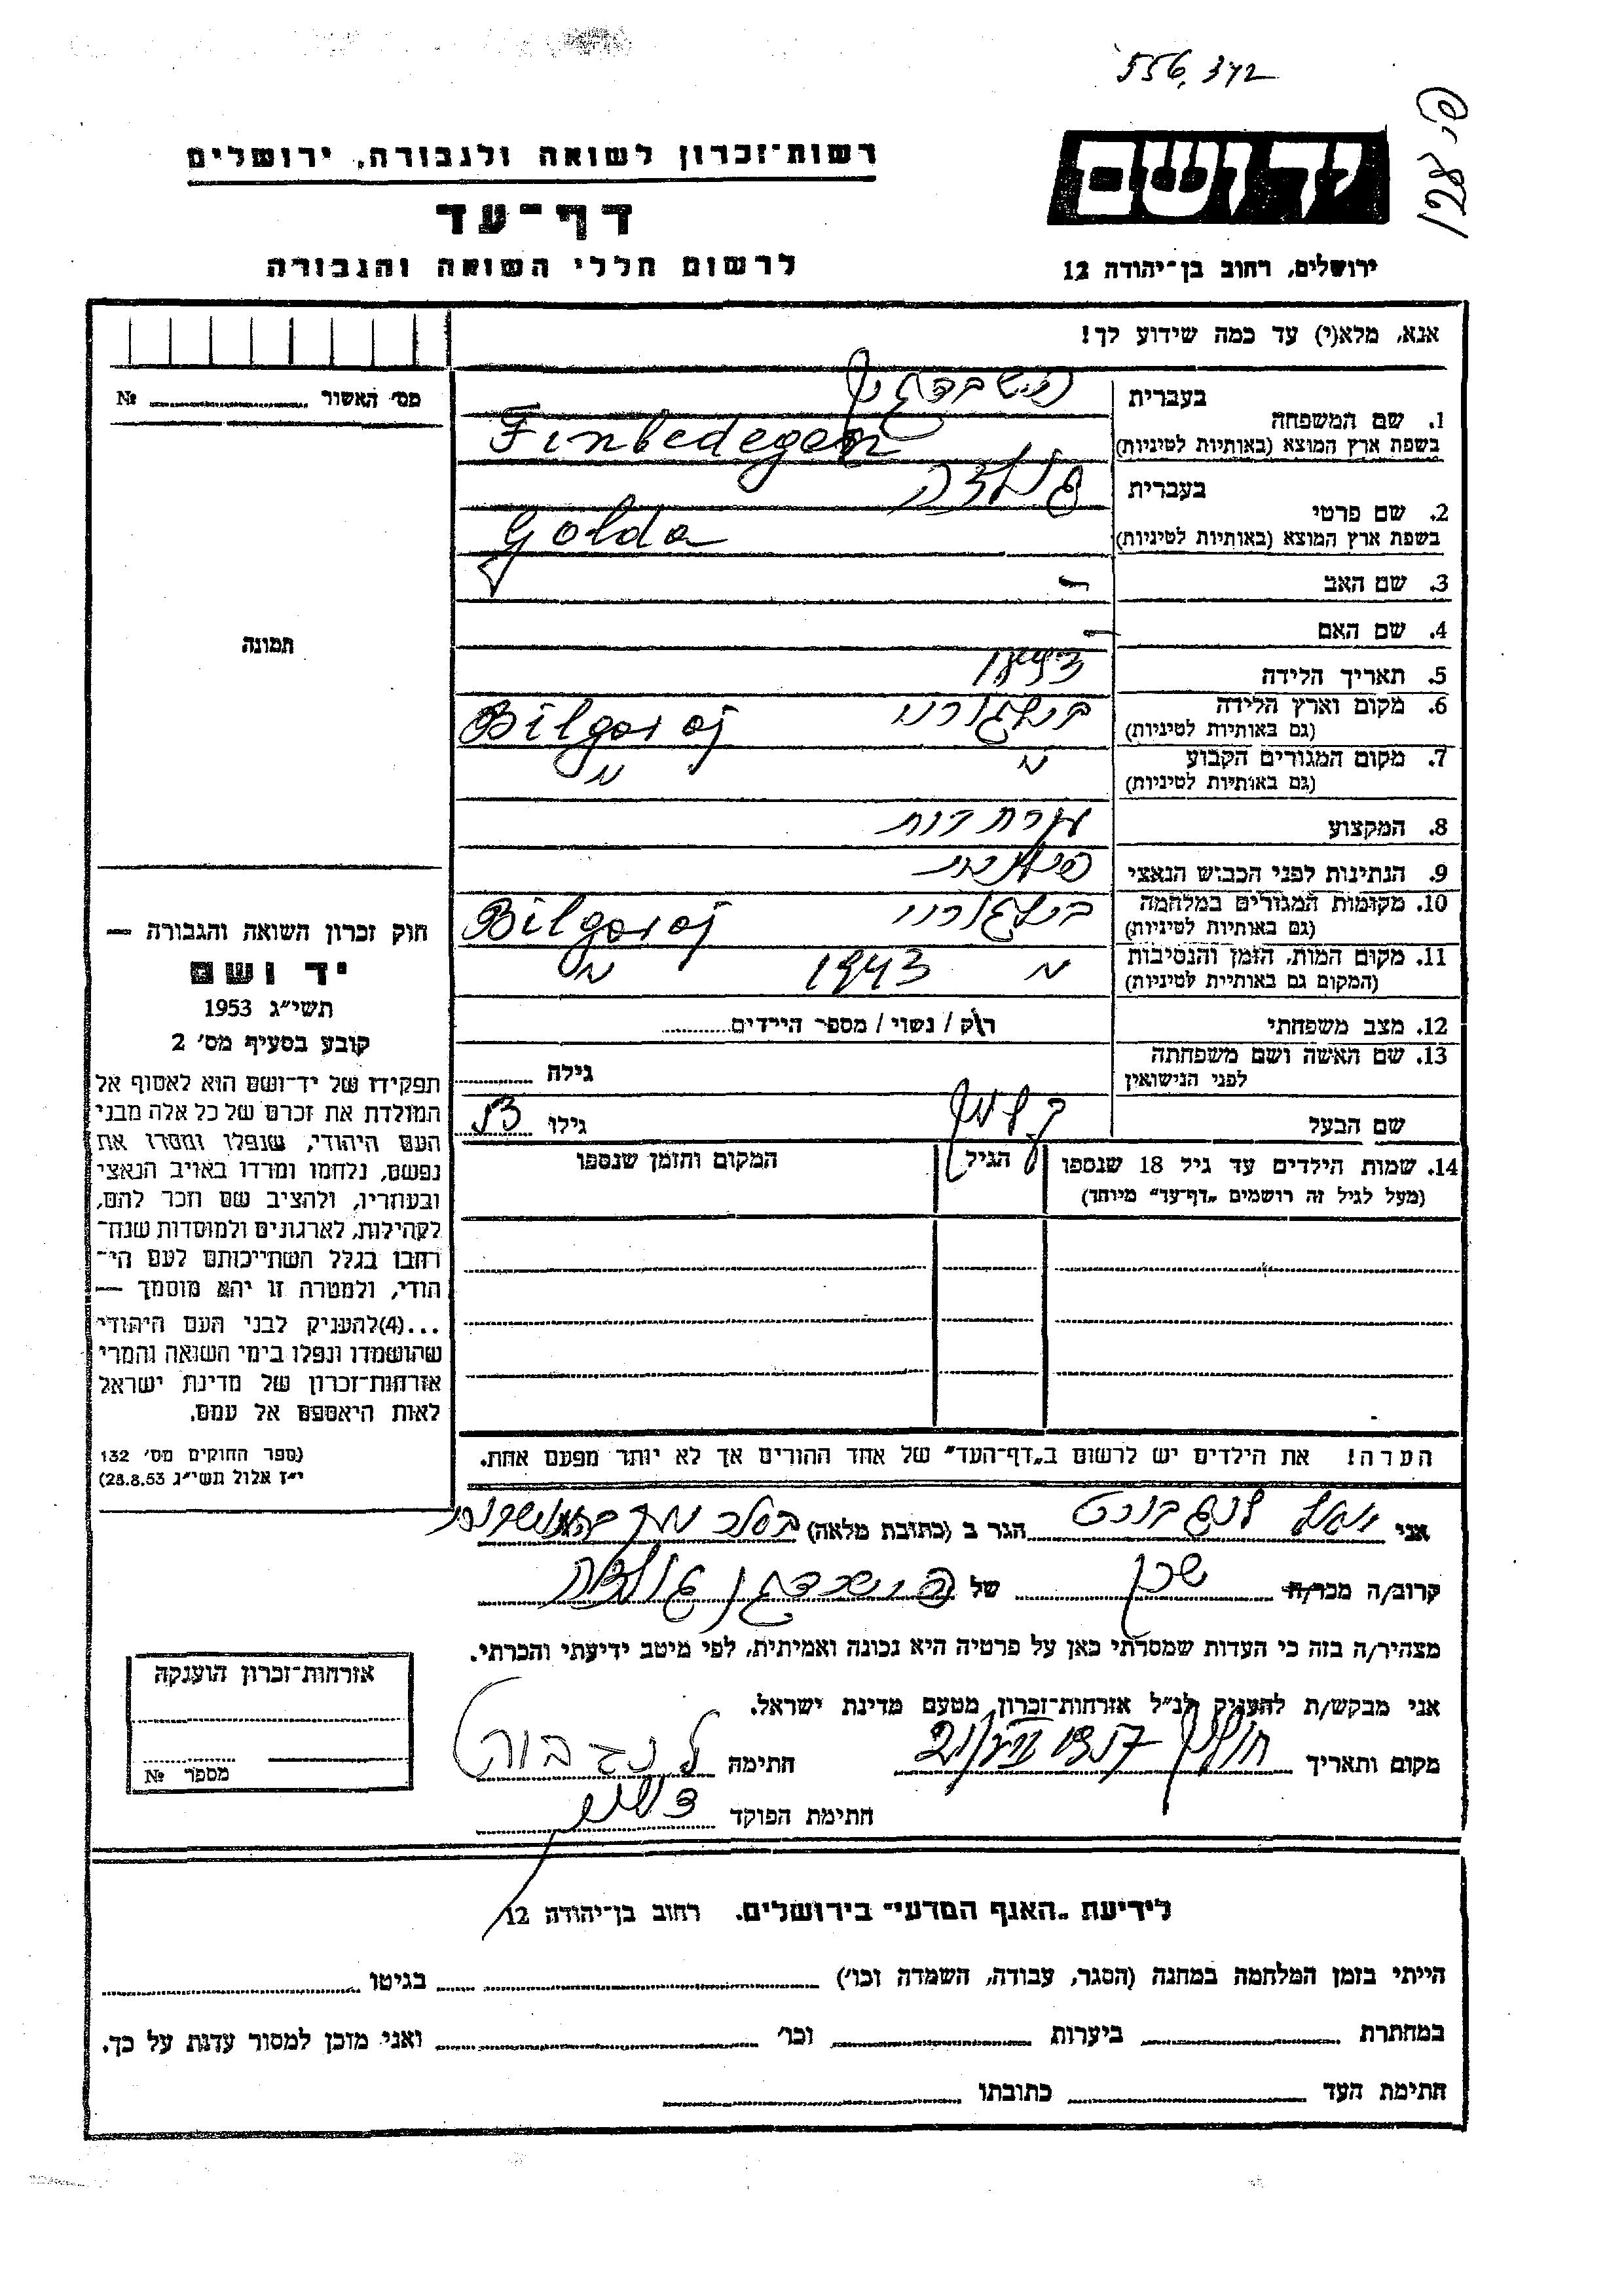 556.372
רשות־זכרון לשואה ולגבורה, ירושלים
דף־עד
לרשום חללי השואה והגבורה
יד ושם
ירושלים, רחוב בן־יהודה 12
אנא, מלא(י) עד כמה שידוע לך!
מס׳ האשור № 
תמונה
חוק זכרון השואה והגבורה —
יד ושם
תשי״ג 1953
קובע בסעיף מס׳ 2
תפקידו של יד־ושם הוא לאסוף אל
המולדת את זכרם של כל אלה מבני
העם היהודי, שנפלו ומסרו את
נפשם, נלחמו ומרדו באויב הנאצי
ובעוזריו, ולהציב שם וזכר להם,
לקהילות, לארגונים ולמוסדות שנח־
רחבו בגלל השתייכותם לעם הי־
הודי, ולמטרה זו יהא מוסמך —
...(4) להעניק לבני העם היהודי
שהושמדו ונפלו בימי השואה והמרי
אזרחות־זכרון של מדינת ישראל
לאות היאספם אל עמם.
(ספר החוקים מס׳ 132
י״ז אלול תשי״ג 28.8.53)
1. שם המשפחה
בעברית
בשפת ארץ המוצא (באותיות לטיניות) Finbedegen
2. שם פרטי
בעברית גולדה
בשפת ארץ המוצא (באותיות לטיניות) Golda
3. שם האב -
4. שם האם -
5. תאריך הלידה
6. מקום וארץ הלידה בילגורוי Bilgoraj
(גם באותיות לטיניות)
7. מקום המגורים הקבוע
(גם באותיות לטיניות)
8. המקצוע עקרת בית
9. הנתינות לפני הכבוש הנאצי פולנית
10. מקומות המגורים במלחמה בילגורוי Bilgoraj
(גם באותיות לטיניות)
11. מקום המות, הזמן והנסיבות 1943
(המקום גם באותיית לטיניות)
12. מצב משפחתי רוק / נשוי / מספר הילדים
13. שם האשה ושם משפחתה
לפני הנישואין גילה
שם הבעל גילו 53
14. שמות הילדים עד גיל 18 שנספו הגיל המקום והזמן שנספו
(מעל לגיל זה רושמים „דף־עד״ מיוחד)
הערה! את הילדים יש לרשום ב„דף־העד״ של אחד ההורים אך לא יותר מפעם אחת.
אני הגר ב (כתובת מלאה)
קרוב/ה מכר/ה שכן של גולדה
מצהיר/ה בזה כי העדות שמסרתי כאן על פרטיה היא נכונה ואמיתית, לפי מיטב ידיעתי והכרתי.
אני מבקש/ת להעניק לנ״ל אזרחות־זכרון מטעם מדינת ישראל.
מקום ותאריך 1957 חתימה
חתימת הפוקד
אזרחות־זכרון הוענקה
מספר №
לידיעת „האגף המדעי״ בירושלים. רחוב בן־יהודה 12
הייתי בזמן המלחמה במחנה (הסגר, עבודה, השמדה וכו׳) בגיטו
במחתרת ביערות וכו׳ ואני מוכן למסור עדות על כך.
חתימת העד כתובתו